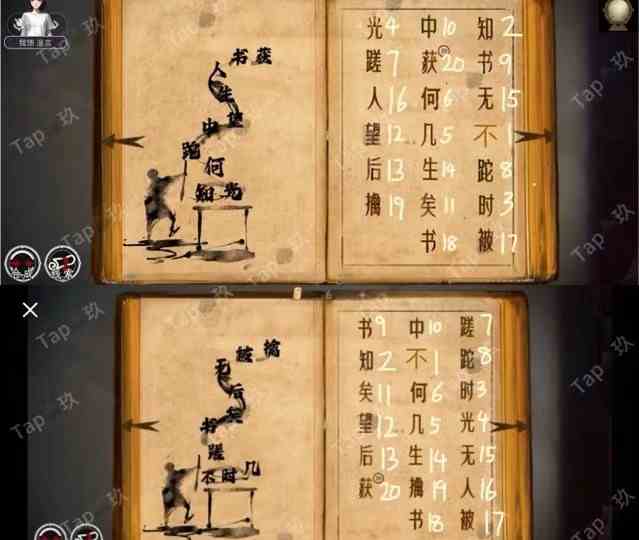 书获
人
生
使
中
跎
何
知光
光4 中10 知2
蹉7 获20 书9
人16 何6 无15
望12 几5 不1
后13 生14 跎8
擒19 矣11 时3
书18 被17
Tap 玖
擒
被
无
后
矣
书
蹉
不时几
书9 中10 蹉7
知2 不1 跎8
矣11 何6 时3
望12 几5 光4
后13 生14 无15
获20 擒19 人16
书18 被17